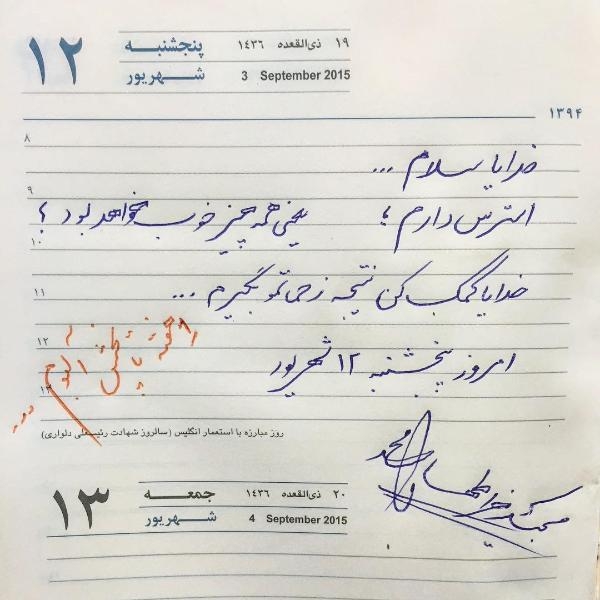 ۱۲
پنجشنبه ۱۹ ذی‌القعده ۱۴۳۶
شهریور 3 September 2015
۱۳۹۴
۸
خدایا سلام ...
۹
استرس دارم ؛ یعنی همه چیز خوب خواهد بود ؟
۱۰
خدایا کمک کن نتیجه زحماتمو بگیرم ...
۱۱
۱۲
امروز پنجشنبه ۱۲ شهریور
۱۳
روز مبارزه با استعمار انگلیس (سالروز شهادت رئیسعلی دلواری)
محمد
۱۳
جمعه ۲۰ ذی‌القعده ۱۴۳۶
شهریور 4 September 2015